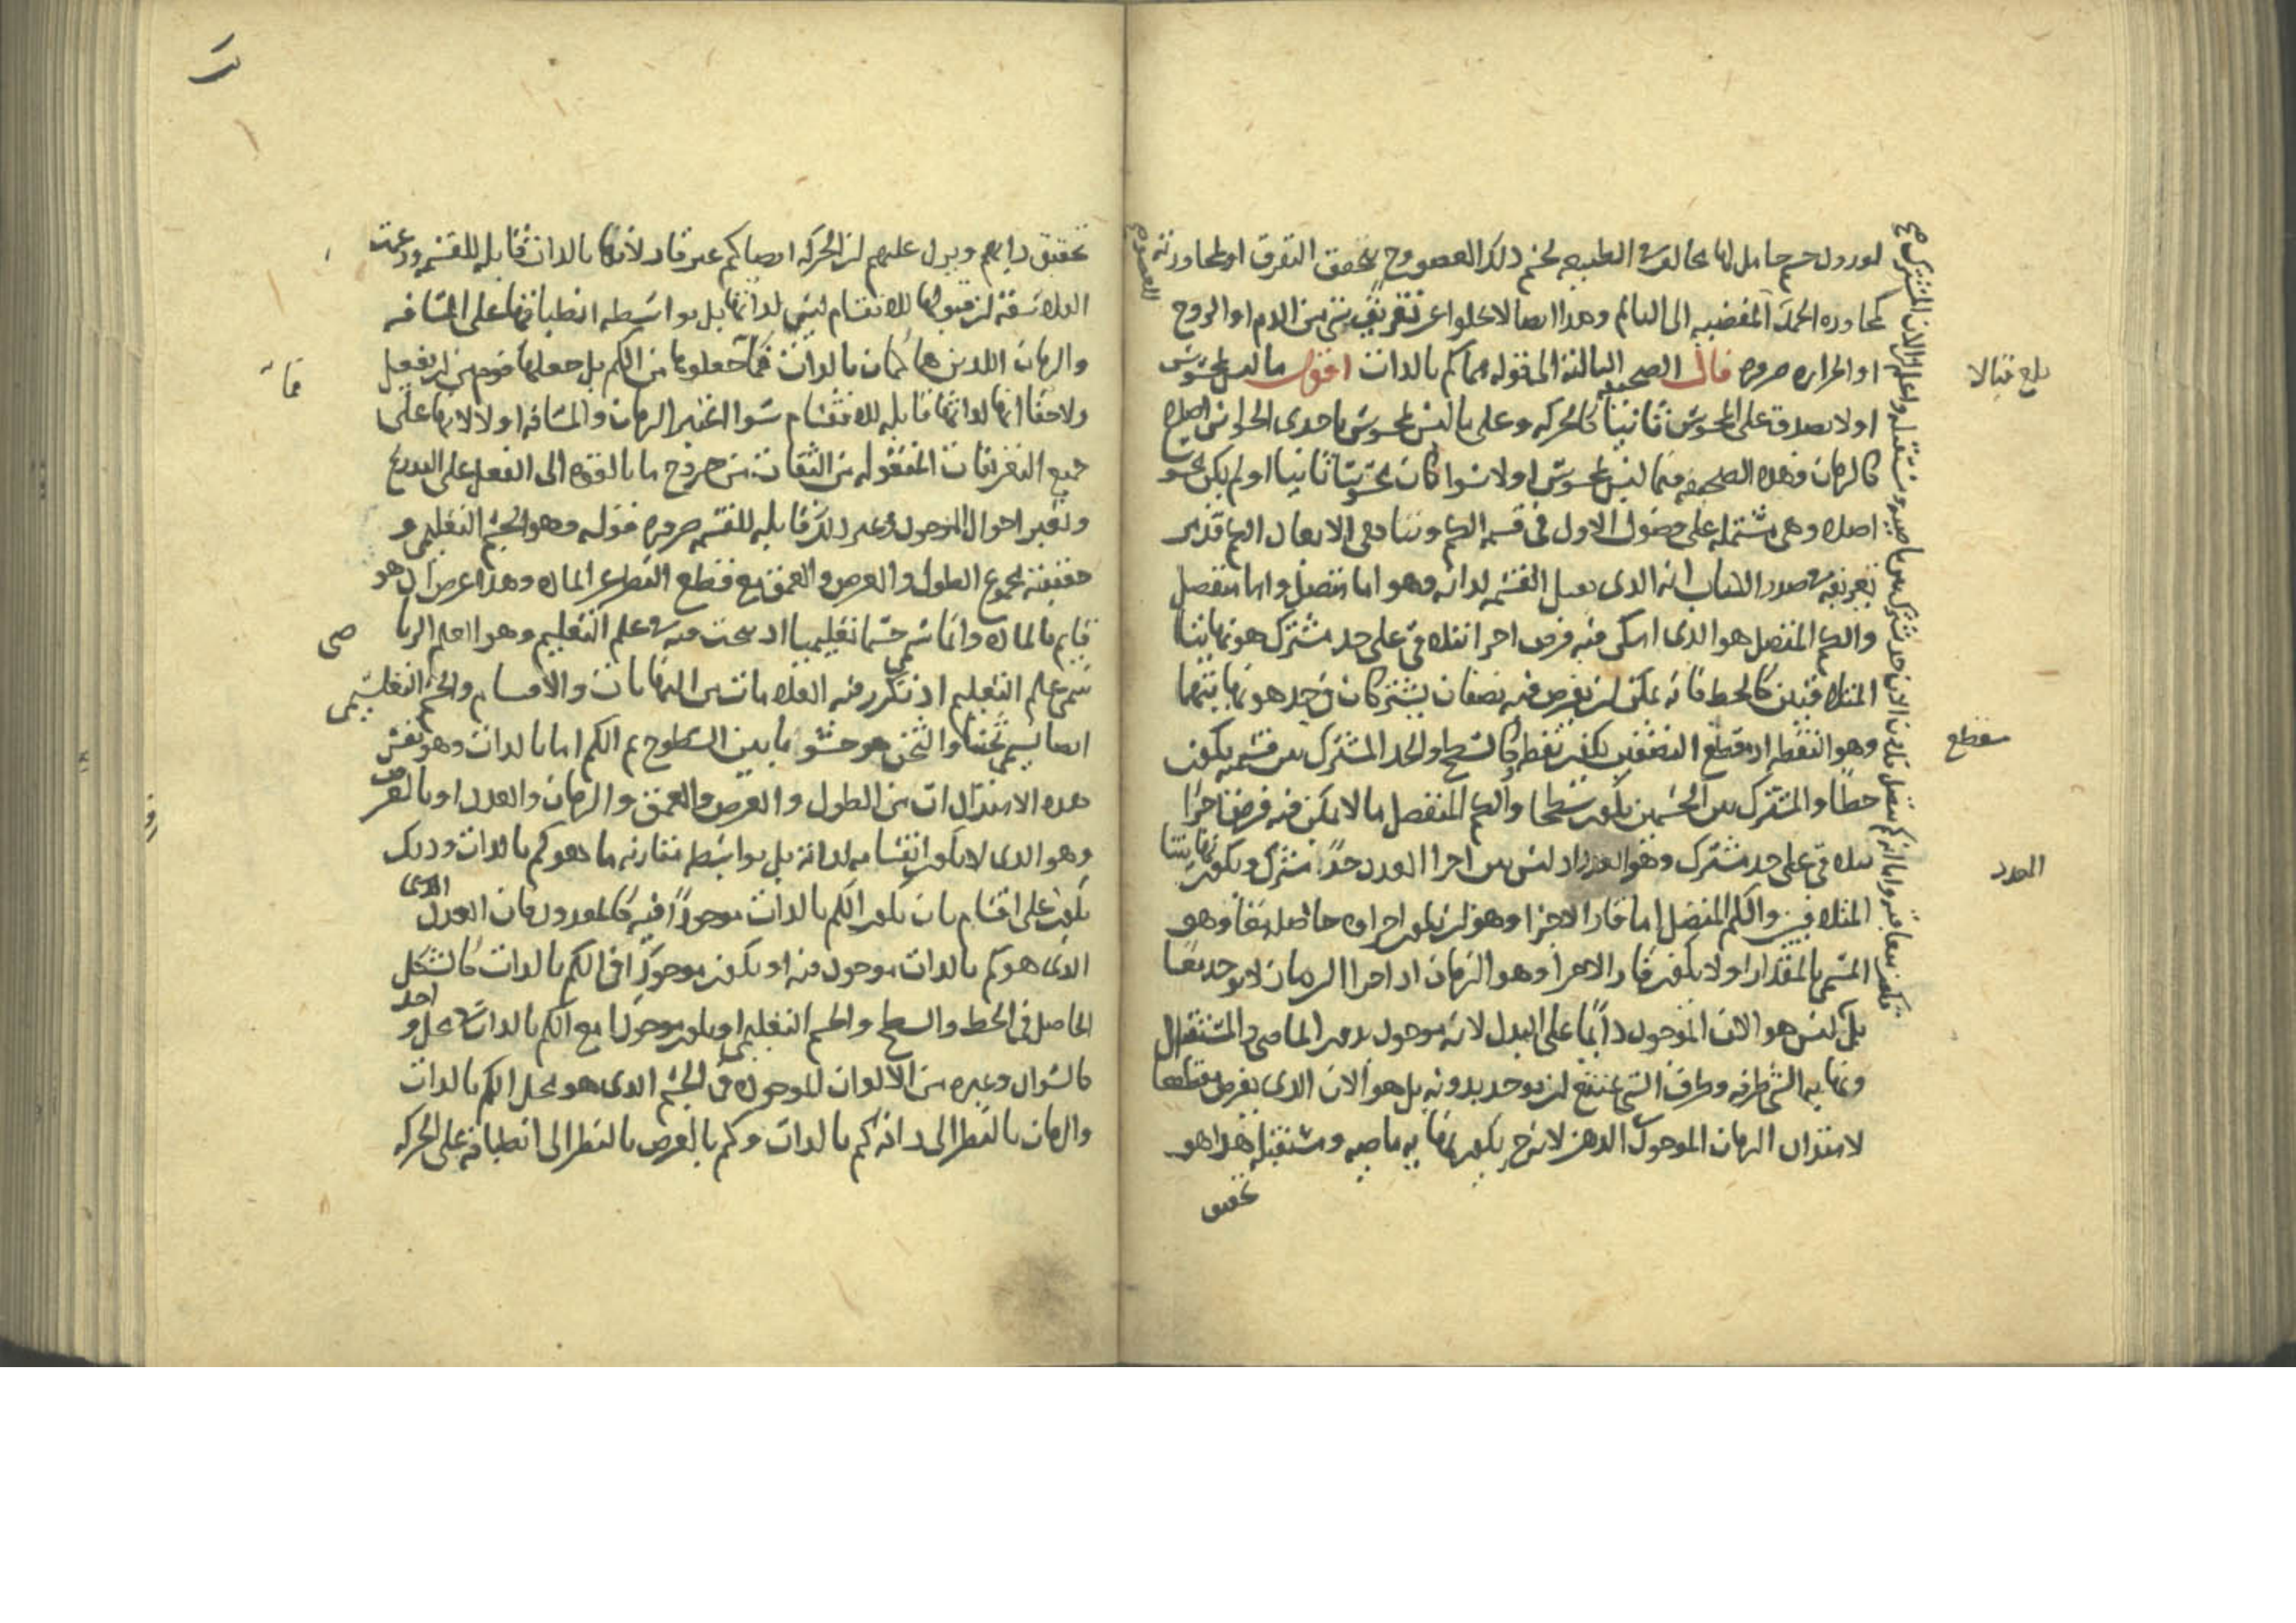 لورود جسم حامل لها مخالف الطبيعه لجسم ذلك العضو وح يتحقق التفرق او لمجاورته العضو
كمجاوره الحمى المفضيه الى الالم وهذا ايضا لا يخلوا عن تفريق شى من الدم او الروح
او الحراره ضروره قال الصحيفه الثالثه المقوله بما كم بالذات اقول ما ليس بمحسوس
اولا يصدق على المحسوس ثانيا كالحركه وعلى ما ليس بمحسوس باحدى الحواس اصلا
كالزمان وهذه الصحيفه فيما ليس بمحسوس اولا سوا كان محسوسا ثانيا او لم يكن محسوسا
اصلا وهى مشتمله على فصول الاول فى قسمه الكم وتناهى الابعاد الكم قد مر
تعريفه فى صدر الكتاب انه الذى يقبل القسمه لذاته وهو اما متصل واما منفصل
والكم المتصل هو الذى امكن فيه فرض اجزا تتلاقى على حد مشترك هو نهايتا
المتلاقيين كالخط فانه يمكن ان يفرض فيه نصفان يشتركان فى حد هو نهايتهما
وهو النقطه اذ مقطع النصفين يكون نقطه وكالسطح والحد المشترك بين قسميه يكون
خطا والمشترك بين الجسمين يكون سطحا والكم المنفصل ما لا يمكن فيه فرض اجزا
تتلاقى على حد مشترك وهو العدد اذ ليس بين اجزا العدد حدا مشترك ويكون نهايتا
المتلاقيين والكم المتصل اما قار الاجزا وهو ان يكون اجزاوه حاصله معا وهو
المسمى بالمقدار او لا يكون قار الاجزا وهو الزمان اذ اجزا الزمان لا يوجد معا
بل ليس هو الان الموجود دائما على البدل لانه موجود بين الماضى والمستقبل
ونهايه الشى طرفه وطرف الشى يمتنع ان يوجد بدونه بل هو الان الذى يفرض مقطعا
لامتداد الزمان الموجود فى الذهن لانه ح يكون نهايه ماضيه ومستقبله هذا هو
تحقيق
بلغ قبالا
مقطع
العدد
تحقيق رايهم ويرد عليهم ان الحركه ايضا كم غير قار لانها بالذات قابله للقسمه وزعمت
الفلاسفه ان قبولها للانقسام ليس لذاتها بل بواسطه انطباقها على المسافه
والزمان اللذين هما كمان بالذات فما جعلوها من الكم بل جعلها قوم من ان يفعل
ولا خفا انها لذاتها قابله للانقسام سوا اعتبر الزمان والمسافه او لا لانها على
جميع التعريفات المنقوله من الثقات من خروج ما بالقوه الى الفعل على التدريج
وتغير احوال الموجود وغير ذلك قابله للقسمه ضروره قوله وهو الجسم التعليمى و
حقيقته مجموع الطول والعرض والعمق مع قطع النظر عن الماده وهذا عرض اذ هو
قايم بالماده وانما سمى جسما تعليميا اذ يبحث عنه فى علم التعليم وهو العلم الرياضى
سمى علم التعليم اذ تكرر فيه العلامات من النهايات والاقسام والجسم التعليمى
ايضا يسمى ثخنا والثخن هو حشو ما بين السطوح ثم الكم اما بالذات وهو نفس
هذه الامتدادات من الطول والعرض والعمق والزمان والعدد او بالعرض
وهو الذى لا يكون انقسامه لذاته بل بواسطه مقارنه ما هو كم بالذات وذلك
يكون على اقسام بان يكون الكم بالذات موجودا فيه كالمعدود فان العدد الذى
الذى هو كم بالذات موجود فيه او يكون موجودا فى الكم بالذات كالشكل
الحاصل فى الخط والسطح والجسم التعليمى او يكون موجودا مع الكم بالذات فى محل واحد
كالسواد وغيره من الالوان الموجوده فى الجسم الذى هو محل الكم بالذات
والزمان بالنظر الى ذاته كم بالذات وكم بالعرض بالنظر الى انطباقه على الحركه